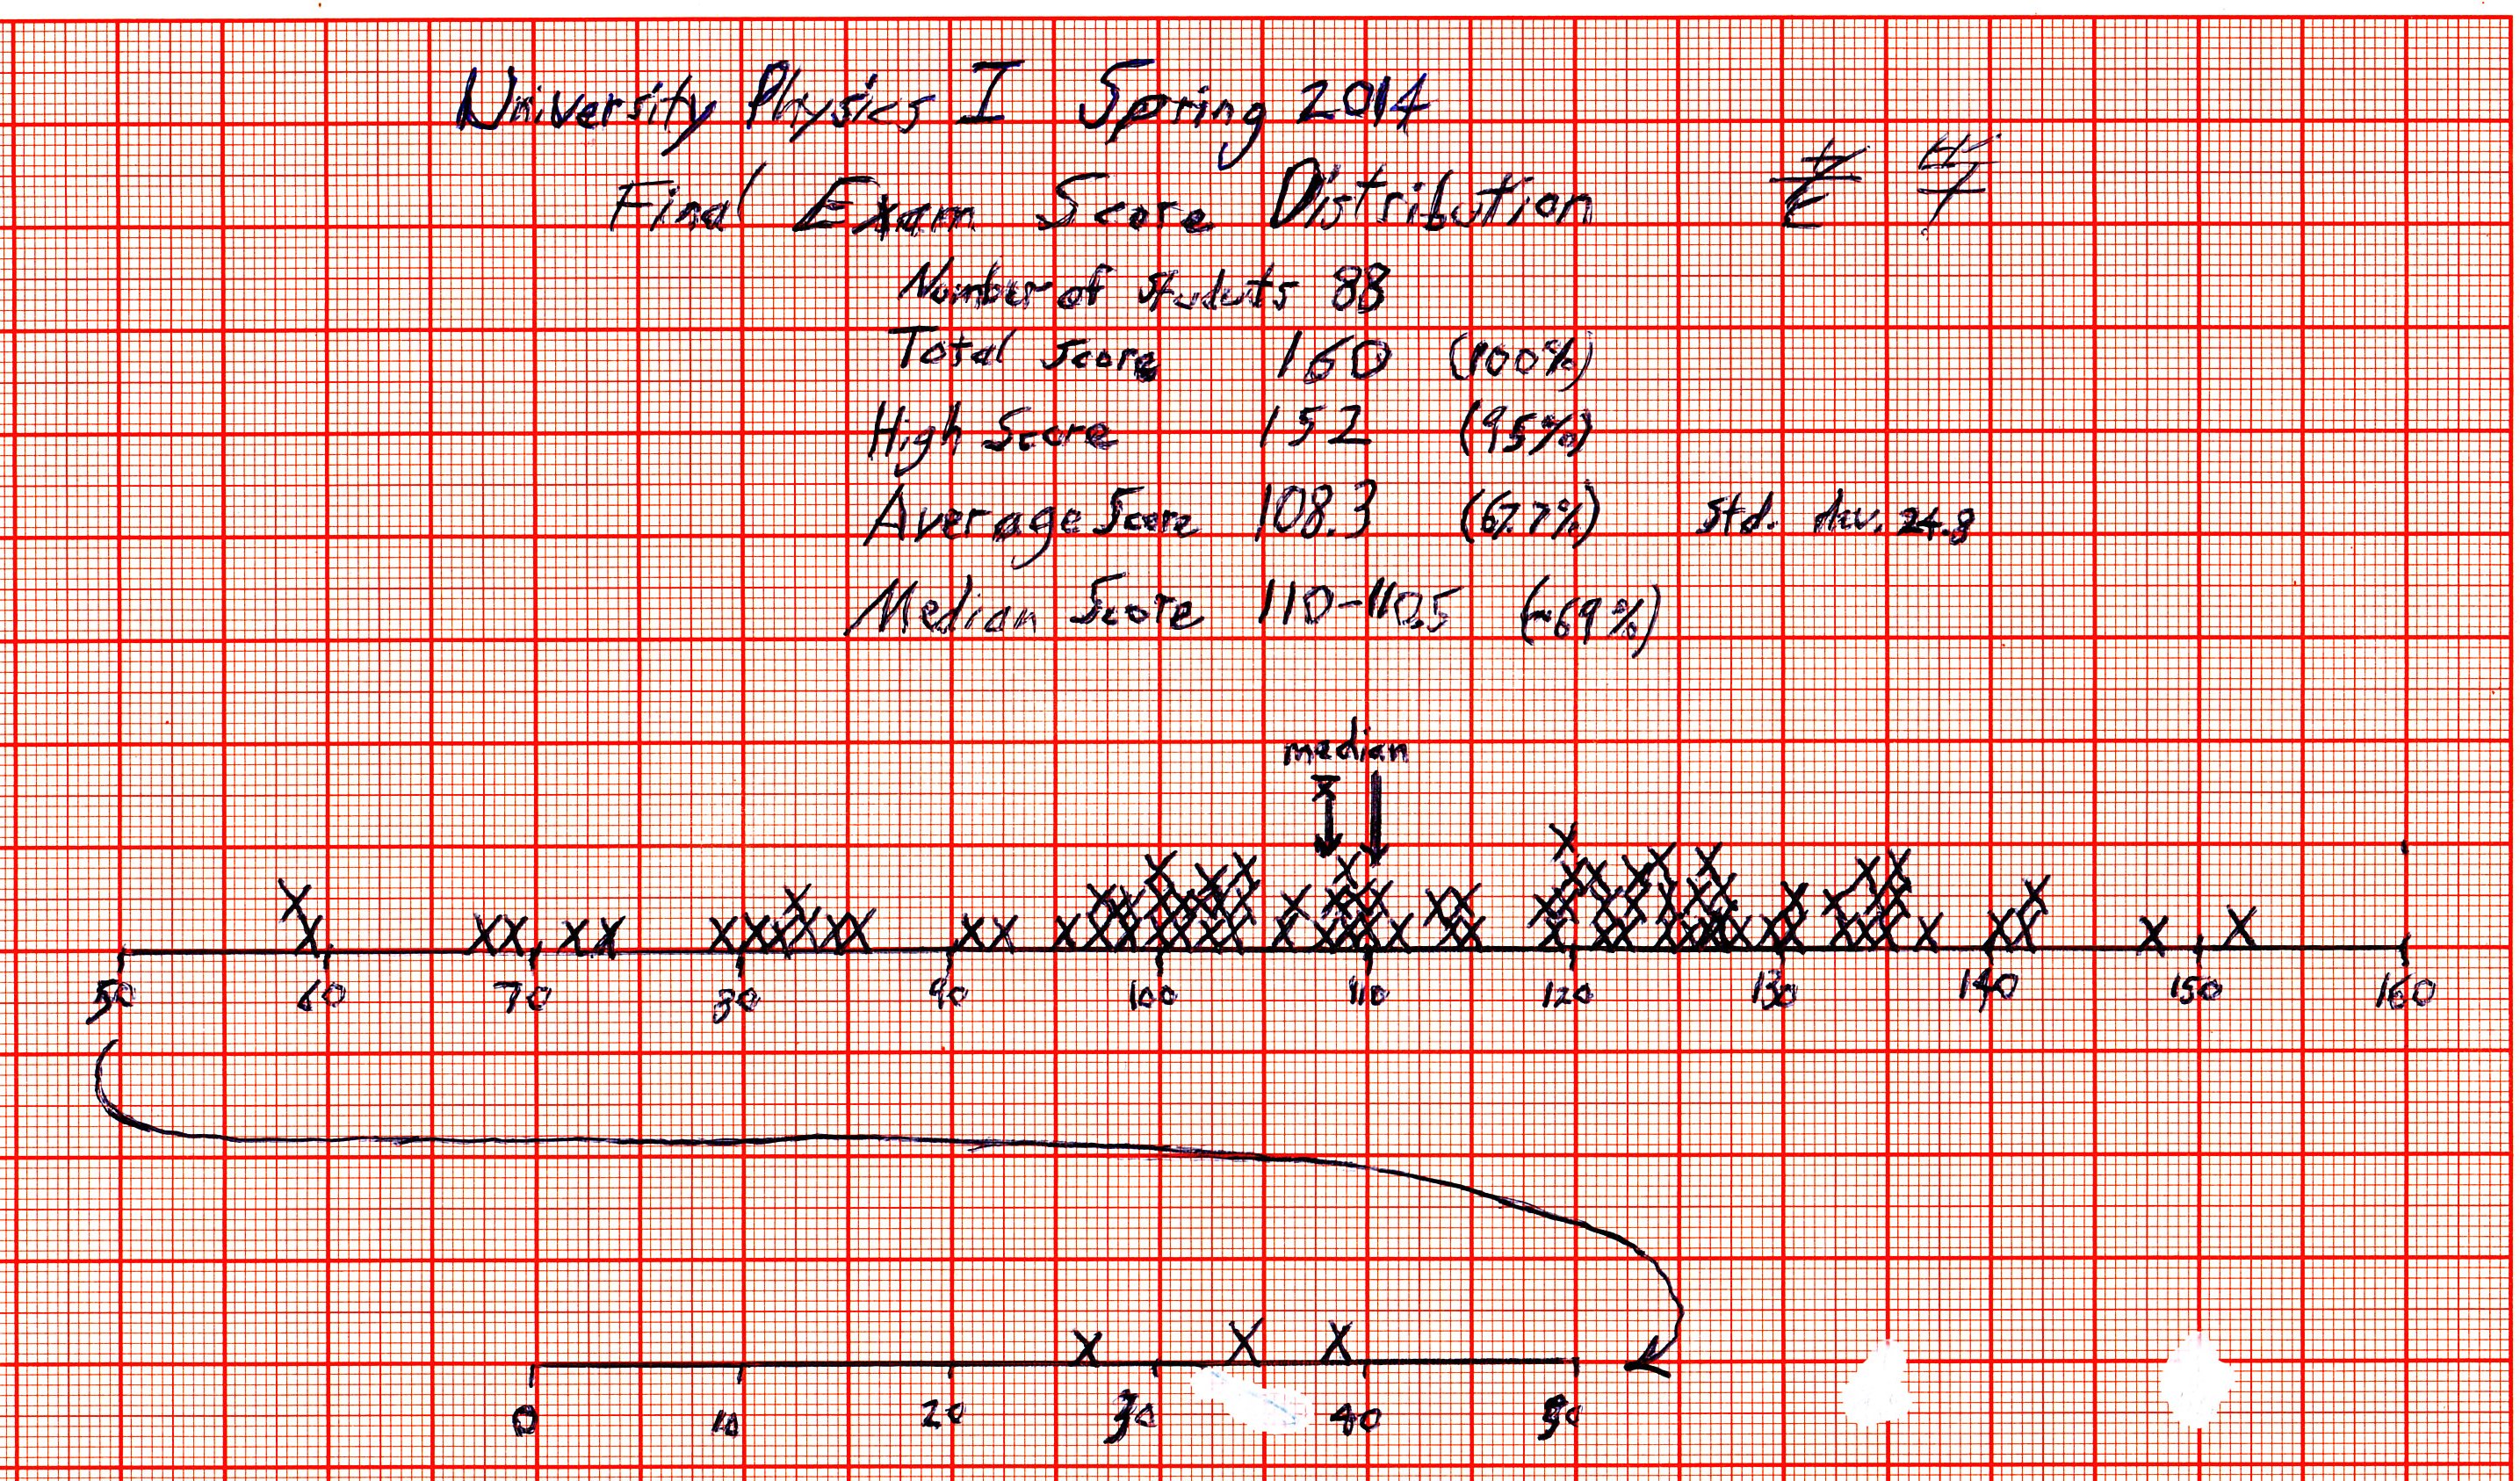 University Physics I Spring 2014
Final Exam Score Distribution
Number of students 88
Total Score 160 (100%)
High Score 152 (95%)
Average Score 108.3 (67.7%) std. dev. 24.8
Median Score 110-110.5 (~69%)
median
x̄
50 60 70 80 90 100 110 120 130 140 150 160
0 10 20 30 40 50